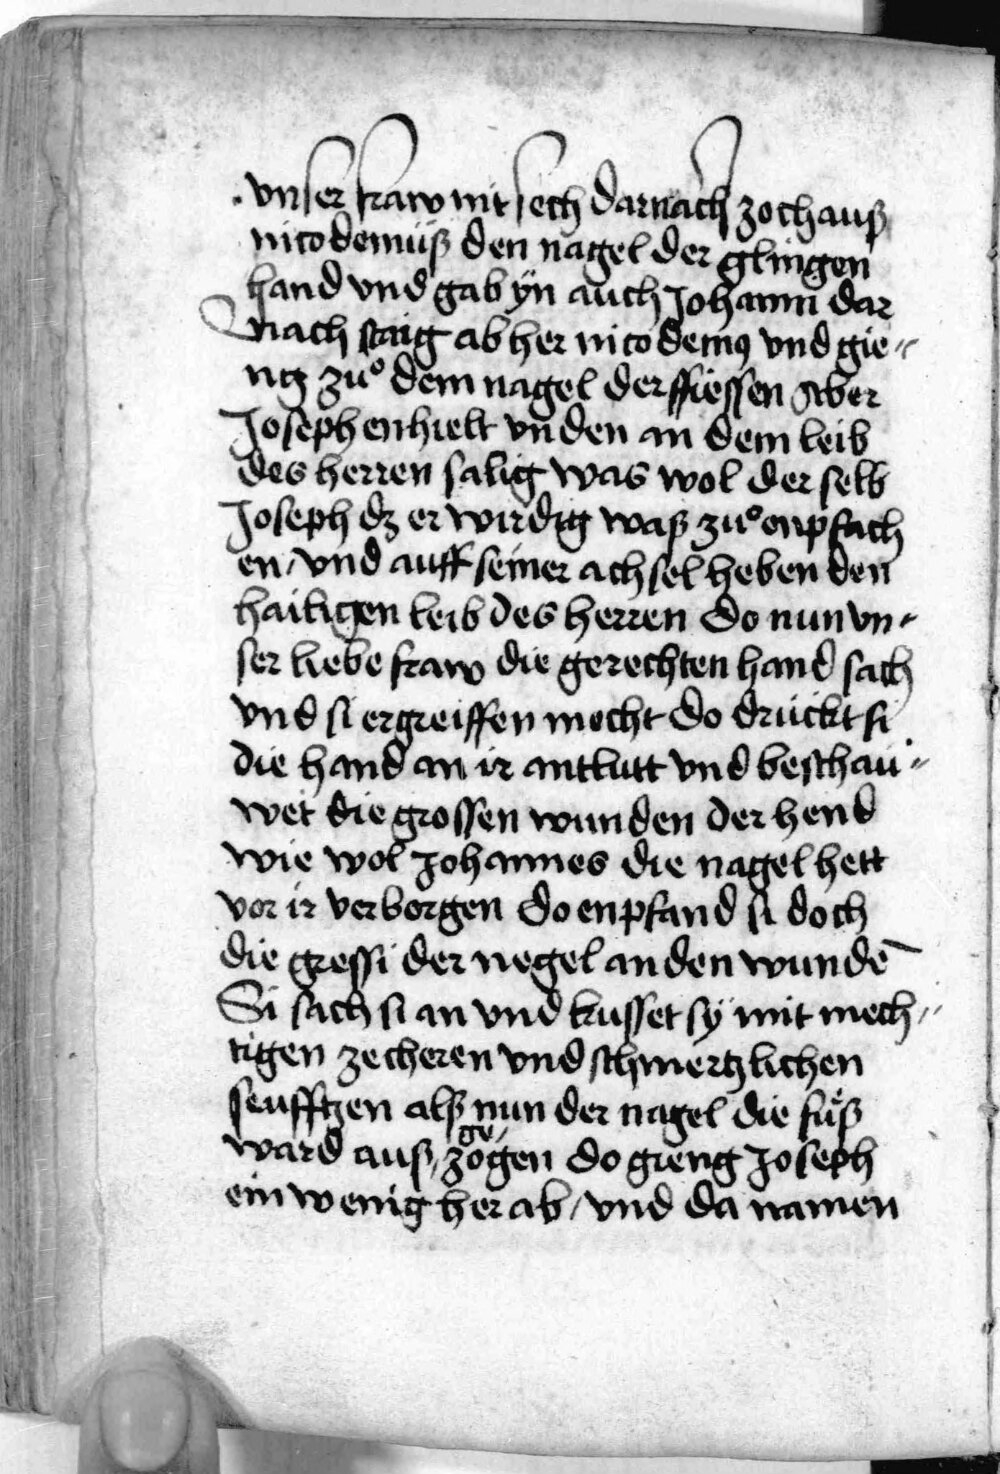 vnser fraw nit sech darnach zoch auß
nicodemüß den nagel der glingen
hand vnd gab ÿn auch Johanni dar
nach staig ab her nicodemꝰ vnd gie-
ng zuͦ dem nagel der fiessen Aber
Joseph enhielt vnden an dem leib
des herren salig was wol der selb
Joseph dz er wirdig waß zuͦ enpfach
en / vnd auff seiner achsel heben den
hailigen leib des herren Do nun vn-
ser liebe fraw die gerechten hand sach
vnd si ergreiffen mocht Do drückt si
die hand an ir antlutt vnd beschau-
wet die grossen wunden der hend
wie wol Johannes die nagel hett
vor ir verborgen Do enpfand si doch
die gressi der negel an den wundē
Si sach si an vnd kusset sÿ mit mech-
tigen zecheren vnd schmertzlichen
seufftzen alß nun der nagel die fuͤß
ward auß gezogen do gieng Joseph
ein wenig her ab / vnd da namen